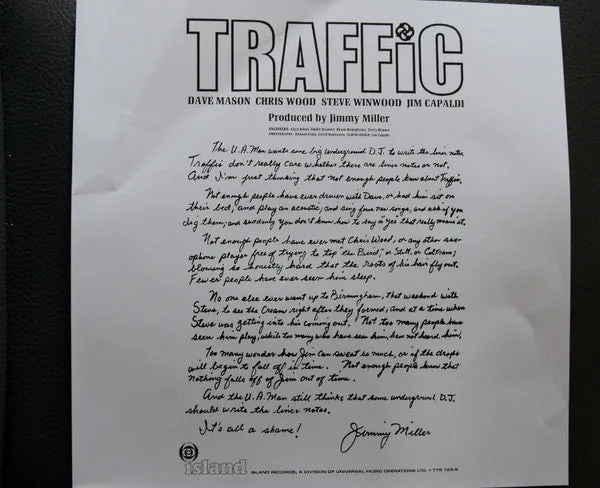 TRAFFiC
DAVE MASON CHRIS WOOD STEVE WINWOOD JIM CAPALDI
Produced by Jimmy Miller
The U.A. Man wants some big underground D.J. to write the liner notes,
Traffic don't really care whether there are liner notes or not,
And I'm just thinking that not enough people know about Traffic.
Not enough people have ever driven with Dave, or had him sit on
their bed, and play an acoustic, and sing four new songs, and ask if you
dig them, and suddenly you don't know how to say a "yes" that really means it.
Not enough people have ever met Chris Wood, or any other sax-
ophone player free of trying to top "the Bird," or Stitt, or Coltrane;
blowing so honestly hard that the roots of his hair fly out.
Fewer people have ever seen him sleep.
No one else ever went up to Birmingham, that weekend with
Steve, to see the Cream right after they formed, and at a time when
Steve was getting into his coming out. Not too many people have
seen him play, while too many who have seen him, have not heard him.
Too many wonder how Jim can sweat so much, or if the drops
will begin to fall off in time. Not enough people know that
nothing falls off of Jim out of time.
And the U.A. Man still thinks that some underground D.J.
should write the liner notes.
It's all a shame! Jimmy Miller
island
ISLAND RECORDS, A DIVISION OF UNIVERSAL MUSIC OPERATIONS LTD. • 778 125-5